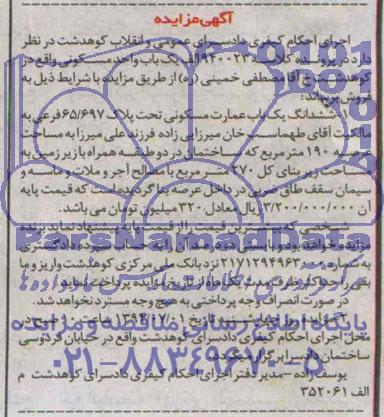 آگهی مزایده
اجرای احکام کیفری دادسرای عمومی و انقلاب کوهدشت در نظر
دارد در پرونده کلاسه ۹۴۰۰۲۳ الف یک باب واحد مسکونی واقع در
کوهدشت خ آقا مصطفی خمینی (ره) از طریق مزایده با شرایط ذیل به
فروش برساند:
۱- ششدانگ یک باب عمارت مسکونی تحت پلاک ۶۵/۶۹۷ فرعی به
مالکیت آقای طهماسب خان میرزایی زاده فرزند علی میرزا به مساحت
عرصه ۱۹۰ متر مربع که ساختمان در دو طبقه همراه با زیر زمین به
مساحت زیر بنای کل ۲۷۰ متر مربع با مصالح آجر و ملات و ماسه و
سیمان سقف طاق ضربی در داخل عرصه بنا گردیده است که قیمت پایه
آن ۳/۲۰۰/۰۰۰/۰۰۰ ریال معادل ۳۲۰ میلیون تومان می باشد.
شخصی که بیشترین قیمت را از قیمت پایه پیشنهاد نماید برنده
مزایده خواهد بود و بایستی ده درصد آن را به سپرده دادگستری
به شماره ۲۱۷۱۲۹۴۹۶۳۰۰۰ نزد بانک ملی مرکزی کوهدشت واریز و ما
بقی را حداکثر ظرف مدت یک ماه از تاریخ مزایده پرداخت نماید
در صورت انصراف وجه پرداختی به هیچ وجه مسترد نخواهد شد.
۲- مزایده روز چهارشنبه تاریخ ۱۳۹۴/۱۲/۰ ساعت ۱۰ صبح در
محل اجرای احکام کیفری دادسرای کوهدشت واقع در خیابان فردوسی
ساختمان دادسرا برگزار میگردد
یوسف زاده - مدیر دفتر اجرای احکام کیفری دادسرای کوهدشت م
الف ۳۵۲۰۶۱
پایگاه اطلاع رسانی مناقصه و مزایده
۰۲۱-۸۸۳۴۹۶۷۰-۵